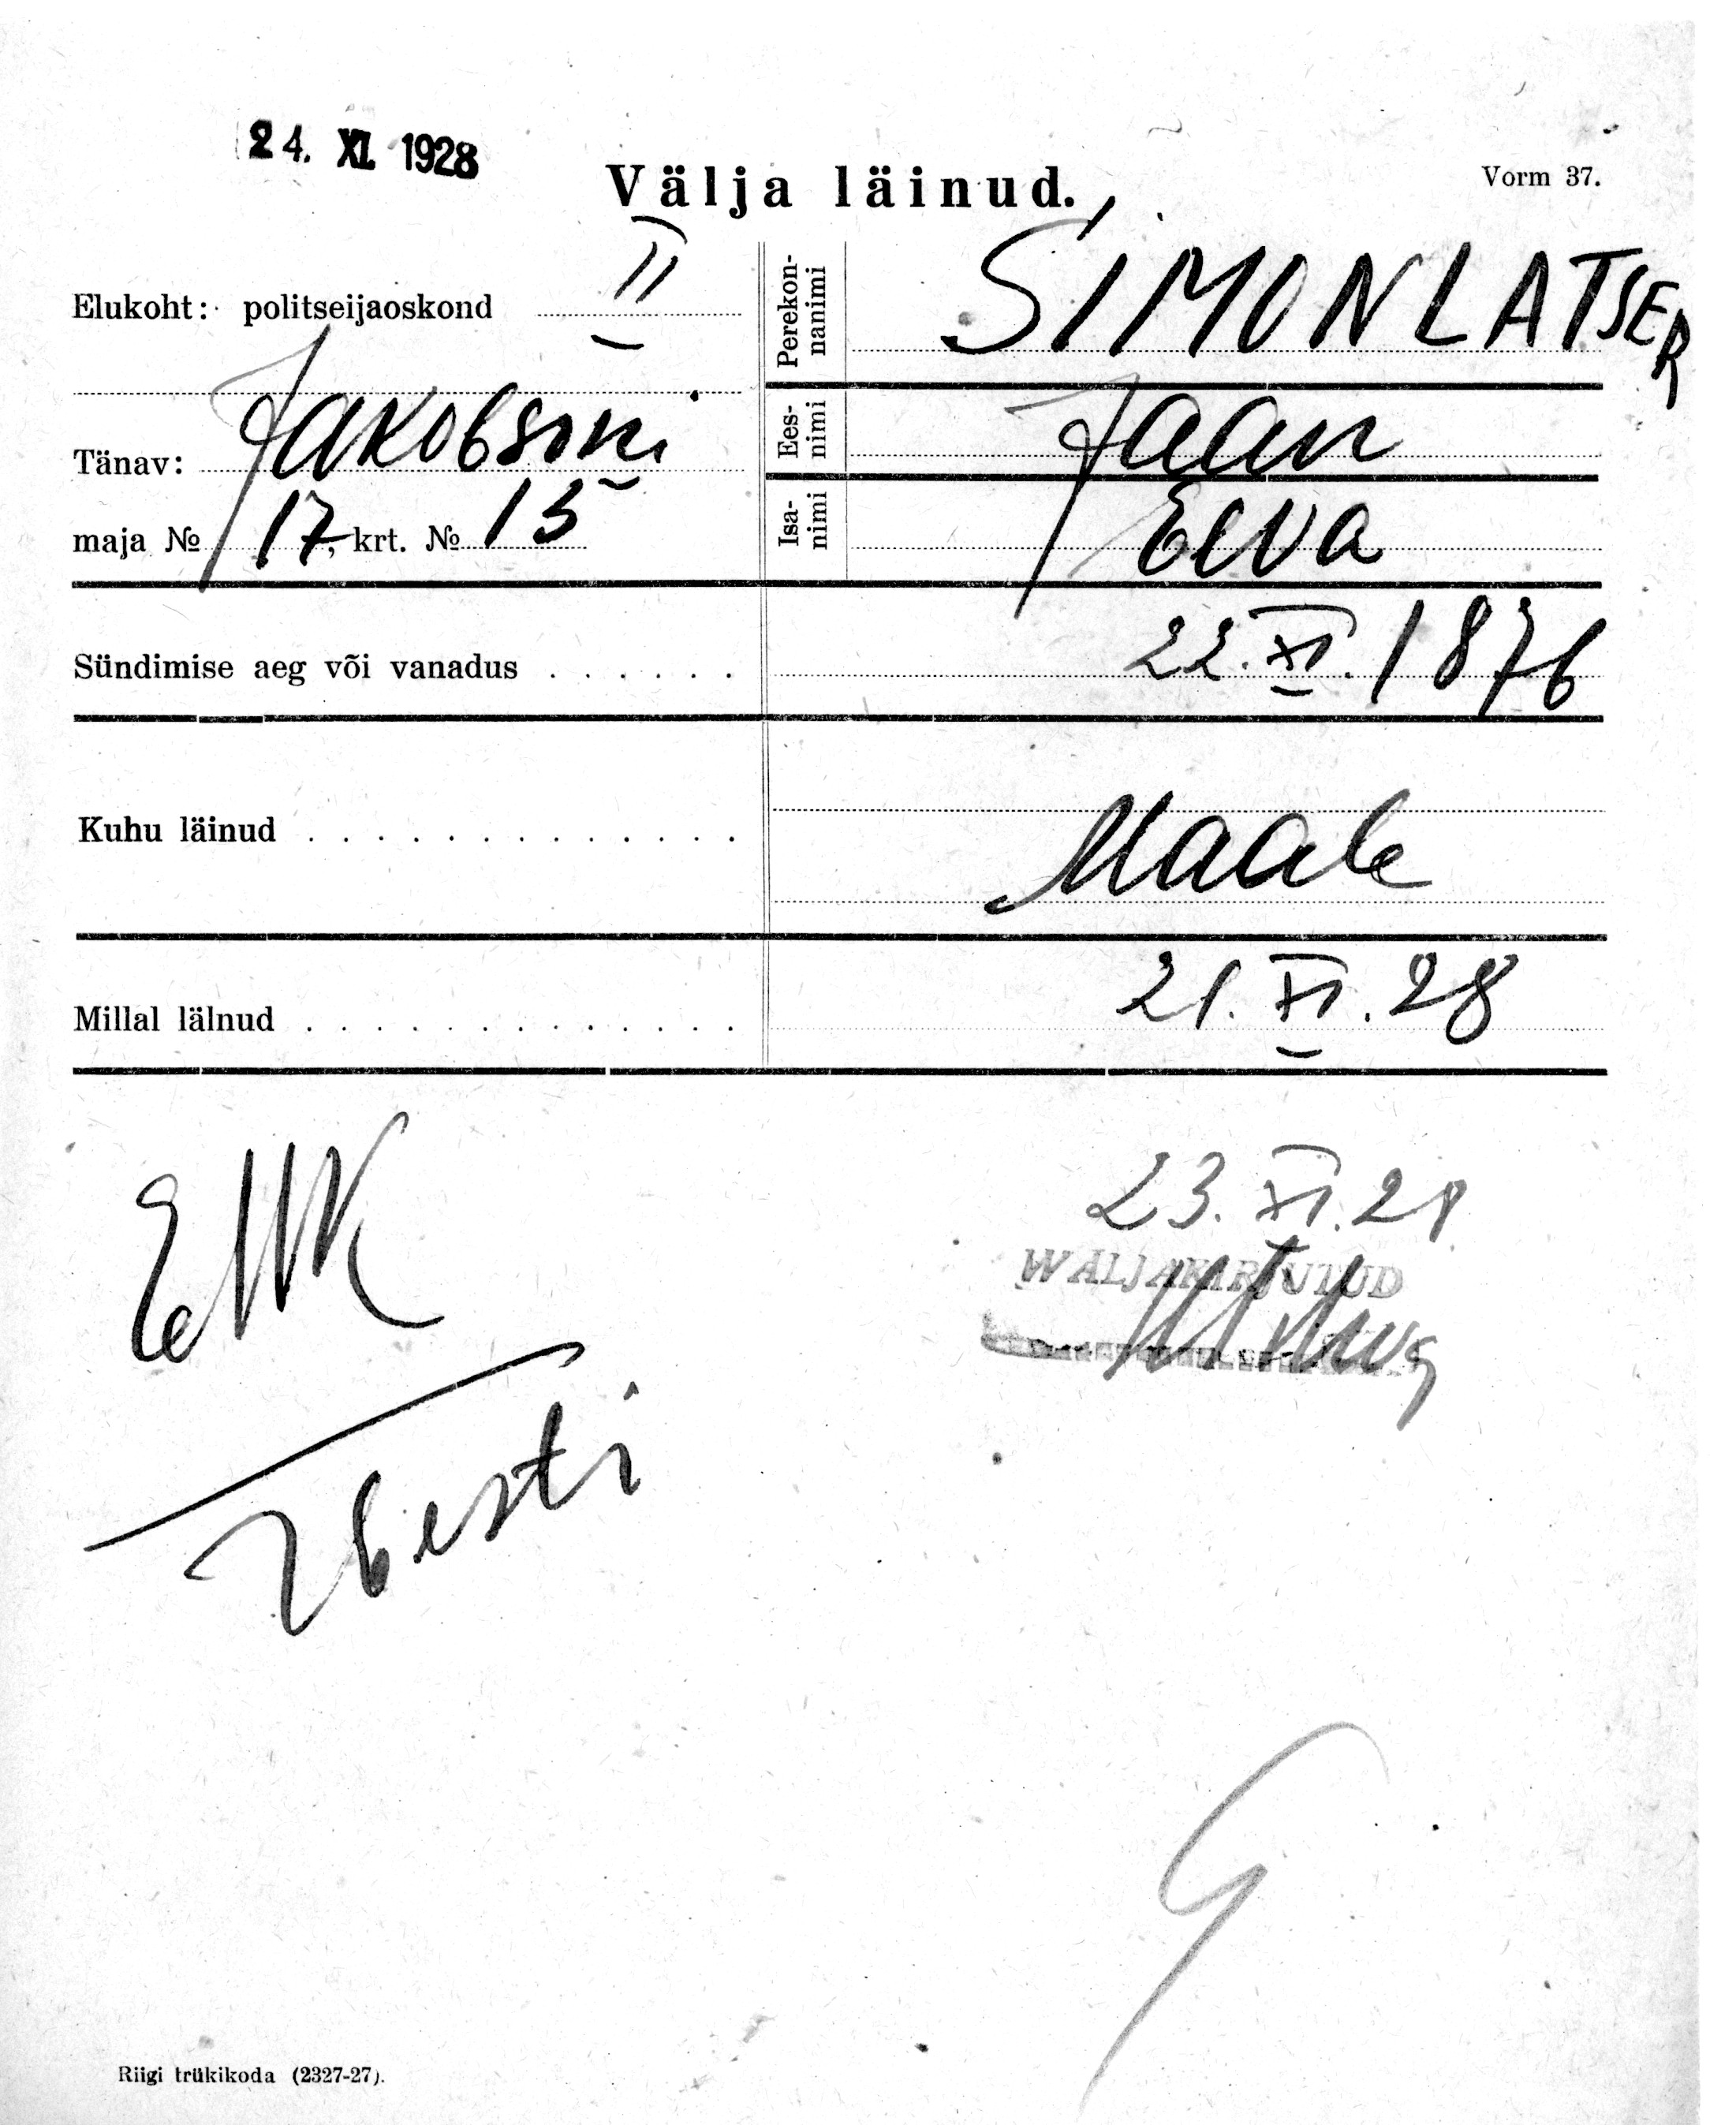 24. XI. 1928
Välja läinud.
Vorm 37.
Elukoht: politseijaoskond II
Tänav: Jakobsoni
maja № 17, krt. № 13
Perekon-
nanimi
SIMONLATSER
Ees-
nimi
Jaan
Isa-
nimi
Eeva
Sündimise aeg või vanadus . . . . . . 22. XI. 1876
Kuhu läinud . . . . . . . . . . . . . Maale
Millal läinud . . . . . . . . . . . . . 21. XI. 28
23. XI. 28
WÄLJAKIRJUTUD
Eesti
Riigi trükikoda (2327-27).